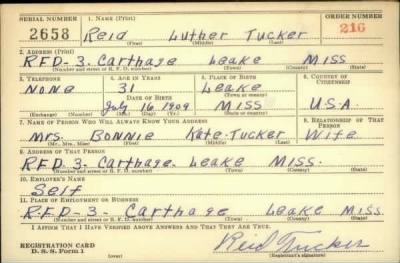 SERIAL NUMBER 1. NAME (Print) ORDER NUMBER
2658 Reid Luther Tucker 216
(First) (Middle) (Last)
2. ADDRESS (Print)
RFD-3. Carthage Leake Miss
(Number and street or R. F. D. number) (Town) (County) (State)
3. TELEPHONE 4. AGE IN YEARS 5. PLACE OF BIRTH 6. COUNTRY OF CITIZENSHIP
None 31 Leake
DATE OF BIRTH (Town or county)
July 16 1909 Miss U.S.A.
(Exchange) (Number) (Mo.) (Day) (Yr.) (State or country)
7. NAME OF PERSON WHO WILL ALWAYS KNOW YOUR ADDRESS 8. RELATIONSHIP OF THAT PERSON
Mrs. Bonnie Kate Tucker Wife
(Mr., Mrs., Miss) (First) (Middle) (Last)
9. ADDRESS OF THAT PERSON
RFD-3. Carthage. Leake Miss.
(Number and street or R. F. D. number) (Town) (County) (State)
10. EMPLOYER'S NAME
Self
11. PLACE OF EMPLOYMENT OR BUSINESS
R.F.D-3- Carthage Leake Miss
(Number and street or R. F. D. number) (Town) (County) (State)
I AFFIRM THAT I HAVE VERIFIED ABOVE ANSWERS AND THAT THEY ARE TRUE.
REGISTRATION CARD
D. S. S. Form 1 (over) Reid Tucker
(Registrant's signature)